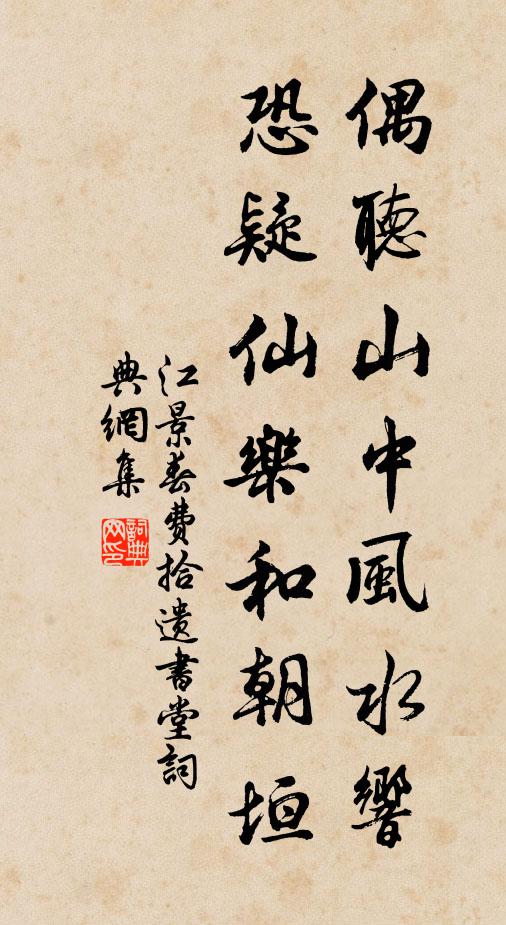 偶聽山中風水響
恐疑仙樂和朝垣
江景春費拾遺書堂詞
典網集
詞典網印